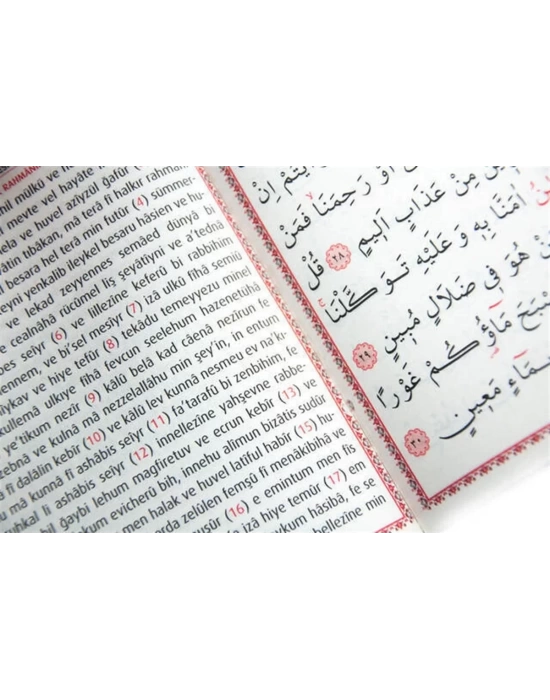 RAHMAN
mil mülkü ve h
meyte vel hayâte
ve huvel azîyzül gafûr
tin tıbâkan, mâ terâ fî halkır rahmân
besara hel terâ min futûr (4) sümmer-
eyni yenkalib ileykel besaru hâsien ve hu-
ve lekad zeyyennes semâed dünyâ bi
cealnâhâ rucûmel liş şeyâtiyni ve a'tednâ
bes seiyr (6) ve lillezîne keferû bi rabbihim
ennem, ve bi'sel mesîyr (7) izâ ulkû fîhâ semiû
ıykav ve hiye tefûr (8) tekâdu temeyyezu minel
kullemâ ulkıye fîhâ fevcun seelehum hazenetühâ
e'tikum nezîr (9) kâlû belâ kad câenâ nezîrun fe
zebnâ ve kulnâ mâ nezzelallâhu min şey'in, in entum
fî dalâlin kebîr (10) ve kâlû lev kunnâ nesmeu ev na'k-
mâ kunnâ fî ashâbis seiyr (11) fa'terafû bi zenbihim, fe
uhkal li ashâbis seiyr (12) innellezîne yahşevne rabbe-
bil ğaybi lehum mağfiretuv ve ecrun kebîr (13) ve
kum evicherû bih, innehu alîmun bizâtis sudûr
men halak ve huvel latîful habîr (15) hu-
arda zelûlen femşû fî menâkibihâ ve
nusûr (16) e emintum men fis
izâ hiye temûr (17) em
aykum hâsibâ, fe se
bellezîne min
اَوْ رَحِمَنَا فَمَنْ
مِنْ عَذَابٍ اَلِيمٍ ٢٨ قُلْ
اٰمَنَّا بِهِ وَعَلَيْهِ تَوَكَّلْنَا
هُوَ فِى ضَلَالٍ مُبِينٍ ٢٩
مَٓاؤُ۬كُمْ غَوْرًا
مَعِينٍ ٣٠